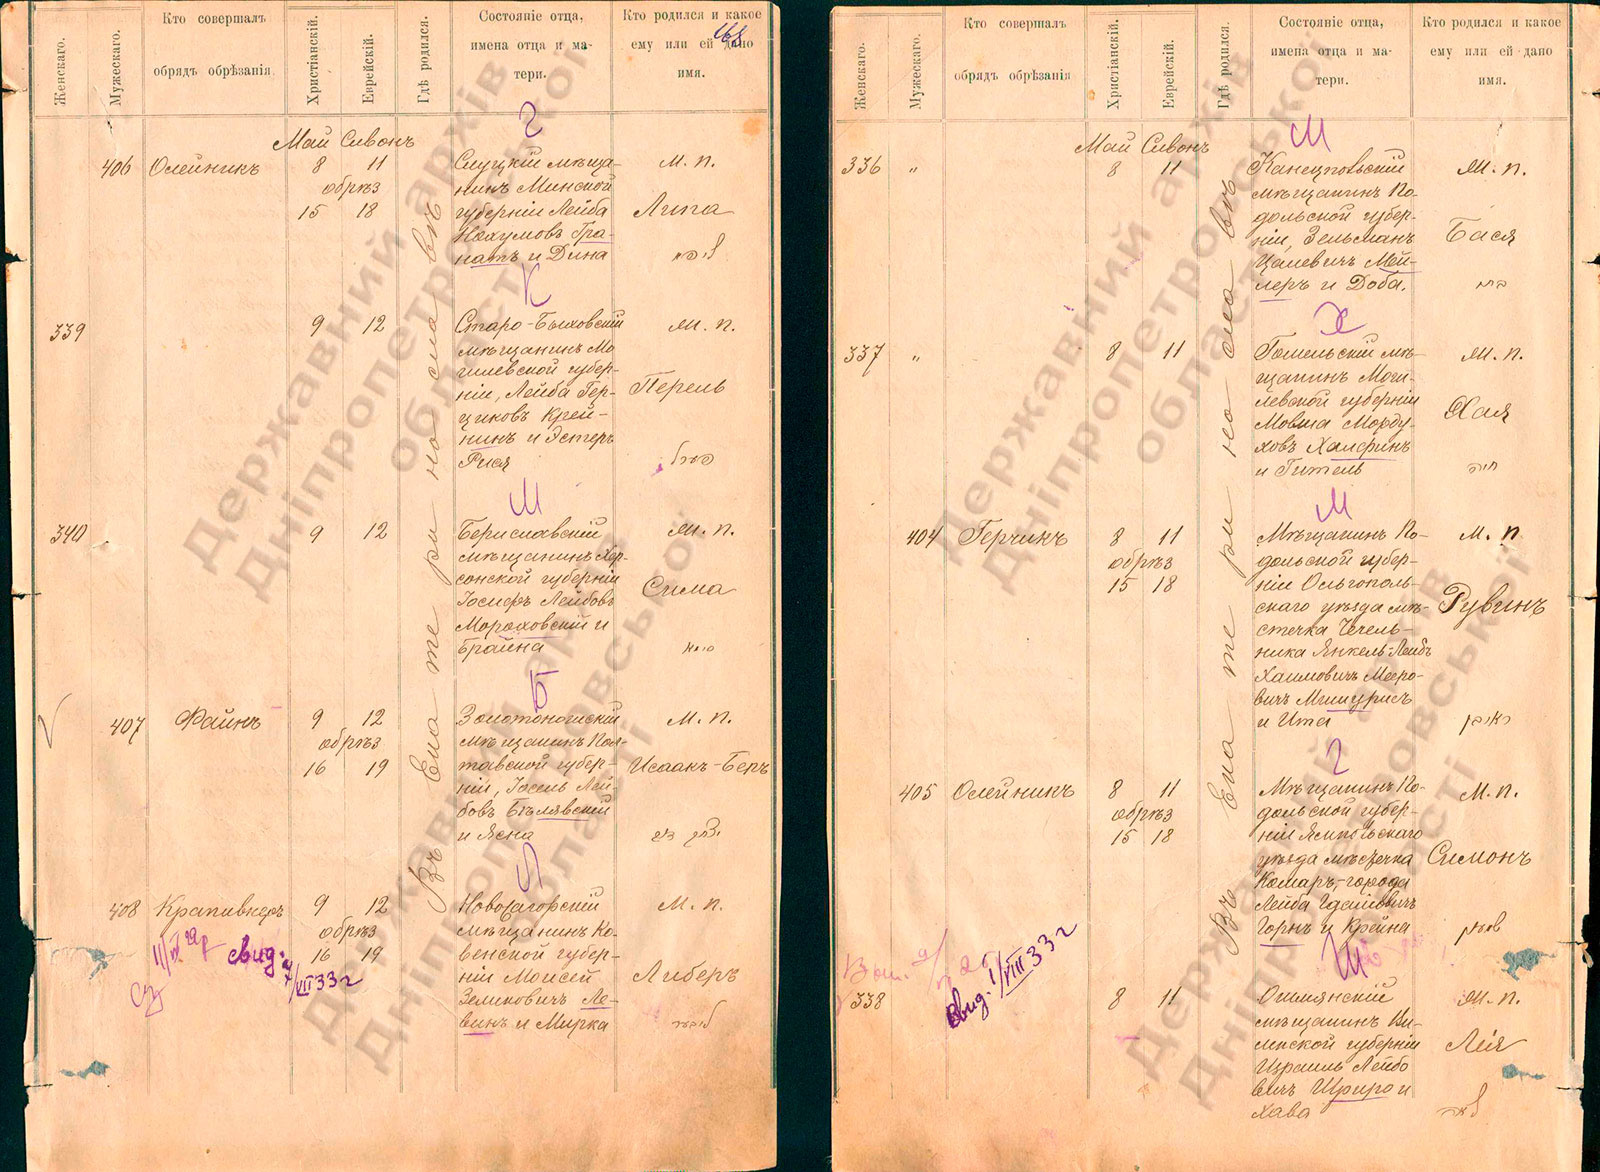 Женскаго.
Мужескаго.
Кто совершалъ
обрядъ обрѣзанія
Христіанскій.
Еврейскій.
Гдѣ родился.
Состояніе отца,
имена отца и ма-
тери.
Кто родился и какое
ему или ей дано
имя.
168
Май Сивонъ
Г
406 Олейникъ 8 11
обрѣз
15 18
Слуцкій мѣща-
нинъ Минской
губерніи Лейба
Нохумовъ Гра-
натъ и Дина
М. п.
Липа
К
339 9 12
Старо-Быховскій
мѣщанинъ Мо-
гилевской губер-
ніи, Лейба Гер-
циковъ Крей-
нинъ и Эстеръ
Рися
М. п.
Перель
М
340 9 12
Бериславскій
мѣщанинъ Хер-
сонской губерніи
Іосифъ Лейбовъ
Мороховскій и
Брайна
М. п.
Сима
סימא
Б
407 Файнъ 9 12
обрѣз
16 19
Золотоношскій
мѣщанинъ Пол-
тавской губер-
ніи, Іосель Лей-
бовъ Бѣлявскій
и Ясна
М. п.
Исаакъ-Беръ
Л
408 Крапивнеръ 9 12
обрѣз
16 19
мѣщанинъ Ко-
венской губер-
ніи Моисей
Зеликовичъ Ле-
винъ и Мирка
М. п.
Либеръ
Выд. 4/VII 33 г
Въ Екатеринославѣ
Державний архів
Дніпропетровської
області
Женскаго.
Мужескаго.
Кто совершалъ
обрядъ обрѣзанія
Христіанскій.
Еврейскій.
Гдѣ родился.
Состояніе отца,
имена отца и ма-
тери.
Кто родился и какое
ему или ей дано
имя.
Май Сивонъ
М
336 „ 8 11
мѣщанинъ По-
дольской губер-
ніи, Зельманъ
Цалевичъ Мей-
леръ и Доба.
М. п.
Бася
Х
337 „ 8 11
Гомельскій мѣ-
щанинъ Моги-
левской губерніи
Мовша Морду-
ховъ Халфинъ
и Гитель
М. п.
Хая
חיה
М
404 Герчикъ 8 11
обрѣз
15 18
Мѣщанинъ По-
дольской губер-
ніи Ольгополь-
скаго уѣзда мѣ-
стечка Чечель-
ника Янкель-Лейбъ
Хаимовичъ Мееро-
вичъ Мишурисъ
и Ита
М. п
Рувинъ
ראובן
Г
405 Олейникъ 8 11
обрѣз
15 18
Мѣщанинъ По-
дольской губер-
ніи Ямпольскаго
уѣзда мѣстечка
Комаръ-города
Лейба Гдаліевичъ
Горнъ и Крейна
М. п.
Симонъ
שמעון
Ш
338 8 11
Ошмянскій
мѣщанинъ Ви-
ленской губерніи
Израиль Лейбо
вичъ Шпиро и
Хава
М. п.
Лея
לאה
Выд. 1/VIII 33 г
Въ Екатеринославѣ
Державний архів
Дніпропетровської
області